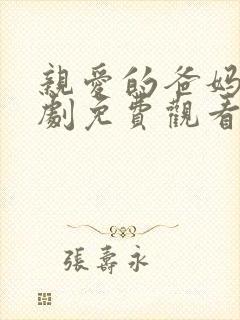 親愛的爸媽
劇免費觀看
張壽永